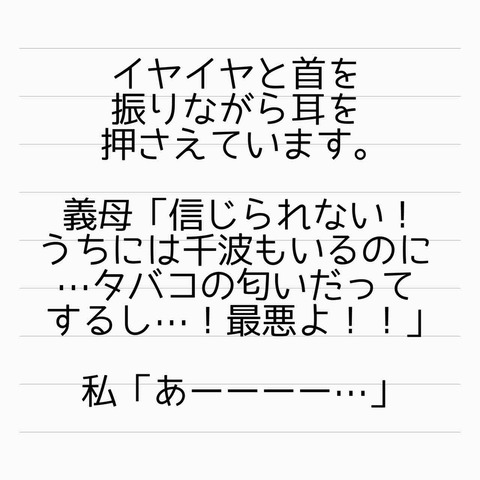 イヤイヤと首を
振りながら耳を
押さえています。
義母「信じられない！
うちには千波もいるのに
…タバコの匂いだって
するし…！最悪よ！！」
私「あーーーー…」